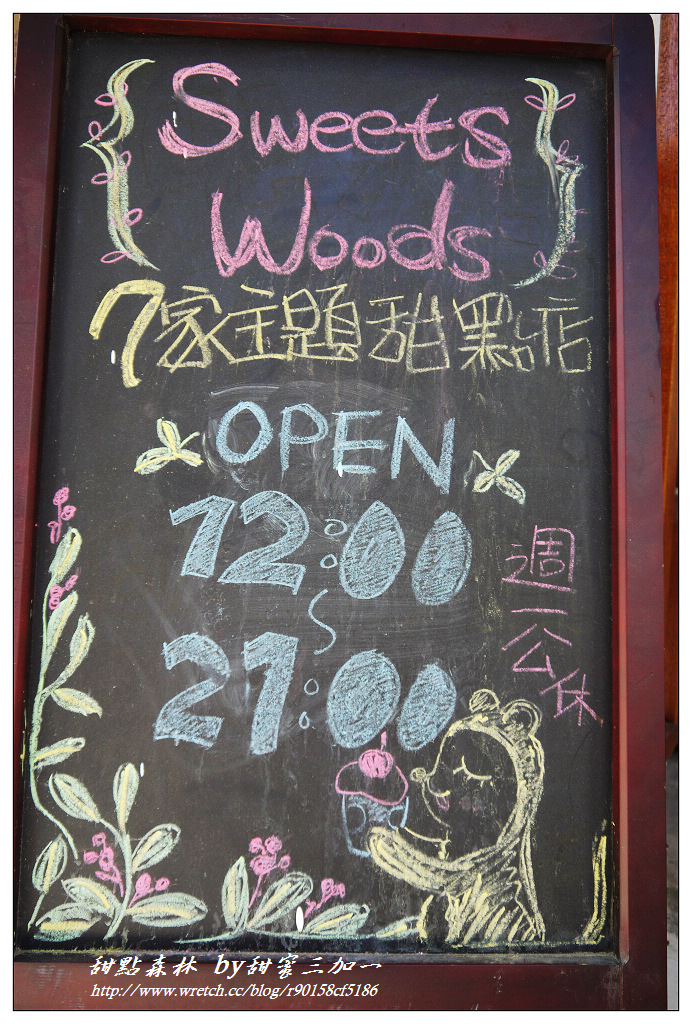 Sweets
Woods
7家主題甜點店
OPEN
12:00
~
21:00
週一公休
甜點森林 by甜蜜三加一
http://www.wretch.cc/blog/r90158cf5186